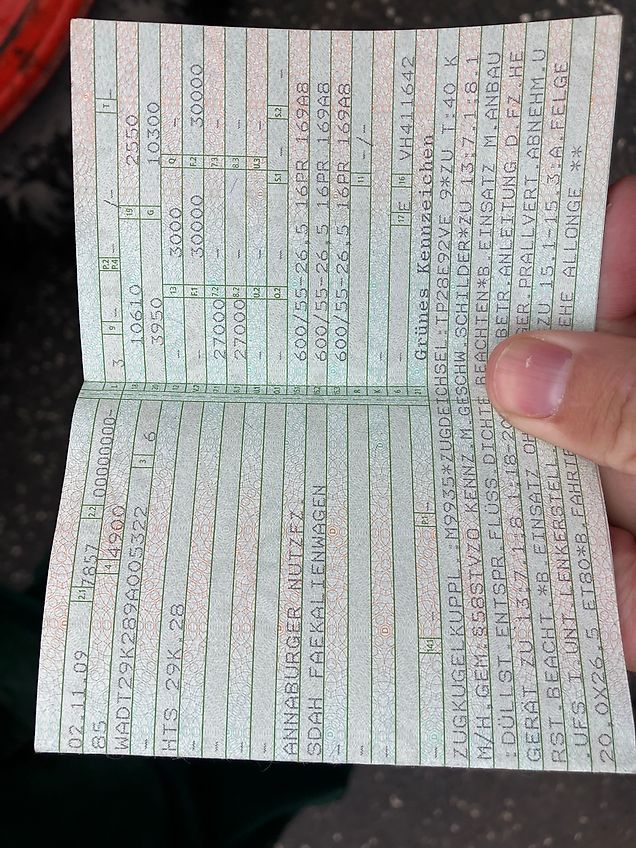 02.11.09 2.1 7857 2.2 00000000-
85 4 4900
WADT29K289A005322 3 6
—
HTS 29K.28
—
—
—
—
—
ANNABURGER NUTZFZ.
SDAH FAEKALIENWAGEN
—
—
—
— 14.1 — P.1 —
L 3 9 — P.2 P.4 — /— T —
10610 19 2550
3950 G 10300
12 — 13 3000 Q —
V.7 — F.1 30000 F.2 30000
7.1 27000 7.2 — 7.3 —
8.1 27000 8.2 — 8.3 —
U.1 — U.2 — U.3 —
O.1 — O.2 — S.1 — S.2 —
15.1 600/55-26,5 16PR 169A8
15.2 600/55-26,5 16PR 169A8
15.3 600/55-26,5 16PR 169A8
R — 11 —/—
K —
6 — 17 E 16 VH411642
21 Grünes Kennzeichen
ZUGKUGELKUPPL.:M9935*ZUGDEICHSEL:TP28E92VE 9*ZU T:40 K
M/H.GEM.§58STVZO KENNZ.M.GESCHW.SCHILDER*ZU 13:7.1:8.1
:DÜLLST.ENTSPR.FLÜSS.DICHTE BEACHTEN*B.EINSATZ M.ANBAU
GERÄT ZU 13:7.1:8.1:18-20 BEIR.ANLEITUNG D.FZ.HE
RST.BEACHT.*B.EINSATZ OH GER.PRALLVERT.ABNEHM.U
.UFS T.UNT.LENKERSTELL ZU 15.1-15.3:A.FELGE
20.0X26,5 ET80*B.FAHRIE EHE ALLONGE **